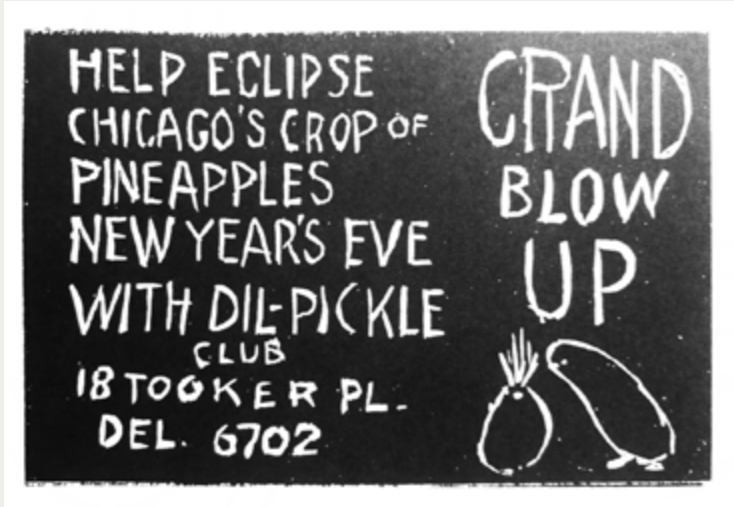 HELP ECLIPSE
CHICAGO'S CROP OF
PINEAPPLES
NEW YEAR'S EVE
WITH DIL-PICKLE
CLUB
18 TOOKER PL.
DEL. 6702
GRAND
BLOW
UP